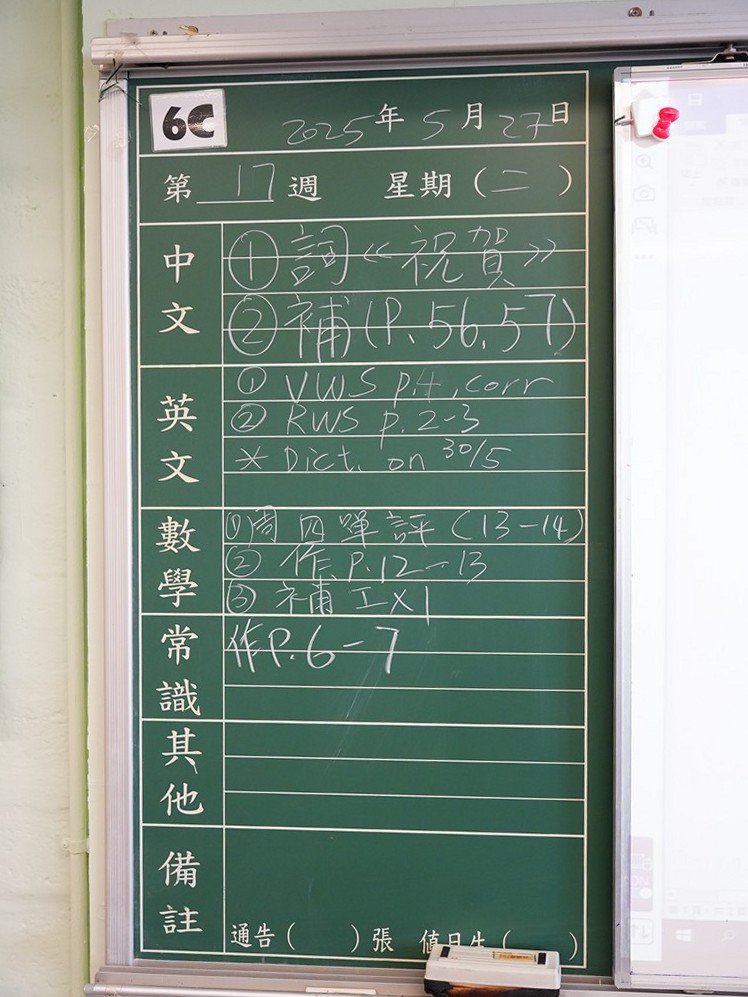 6C
2025年5月27日
第17週 星期(二)
中文
①詞《祝賀》
②補(P.56.57)
英文
① VWS p.4, corr
② RWS p.2-3
* Dict. on 30/5
數學
①周四單評(13-14)
② 作P.12-13
③ 補工×1
常識
作P.6-7
其他
備註
通告( )張 值日生( )